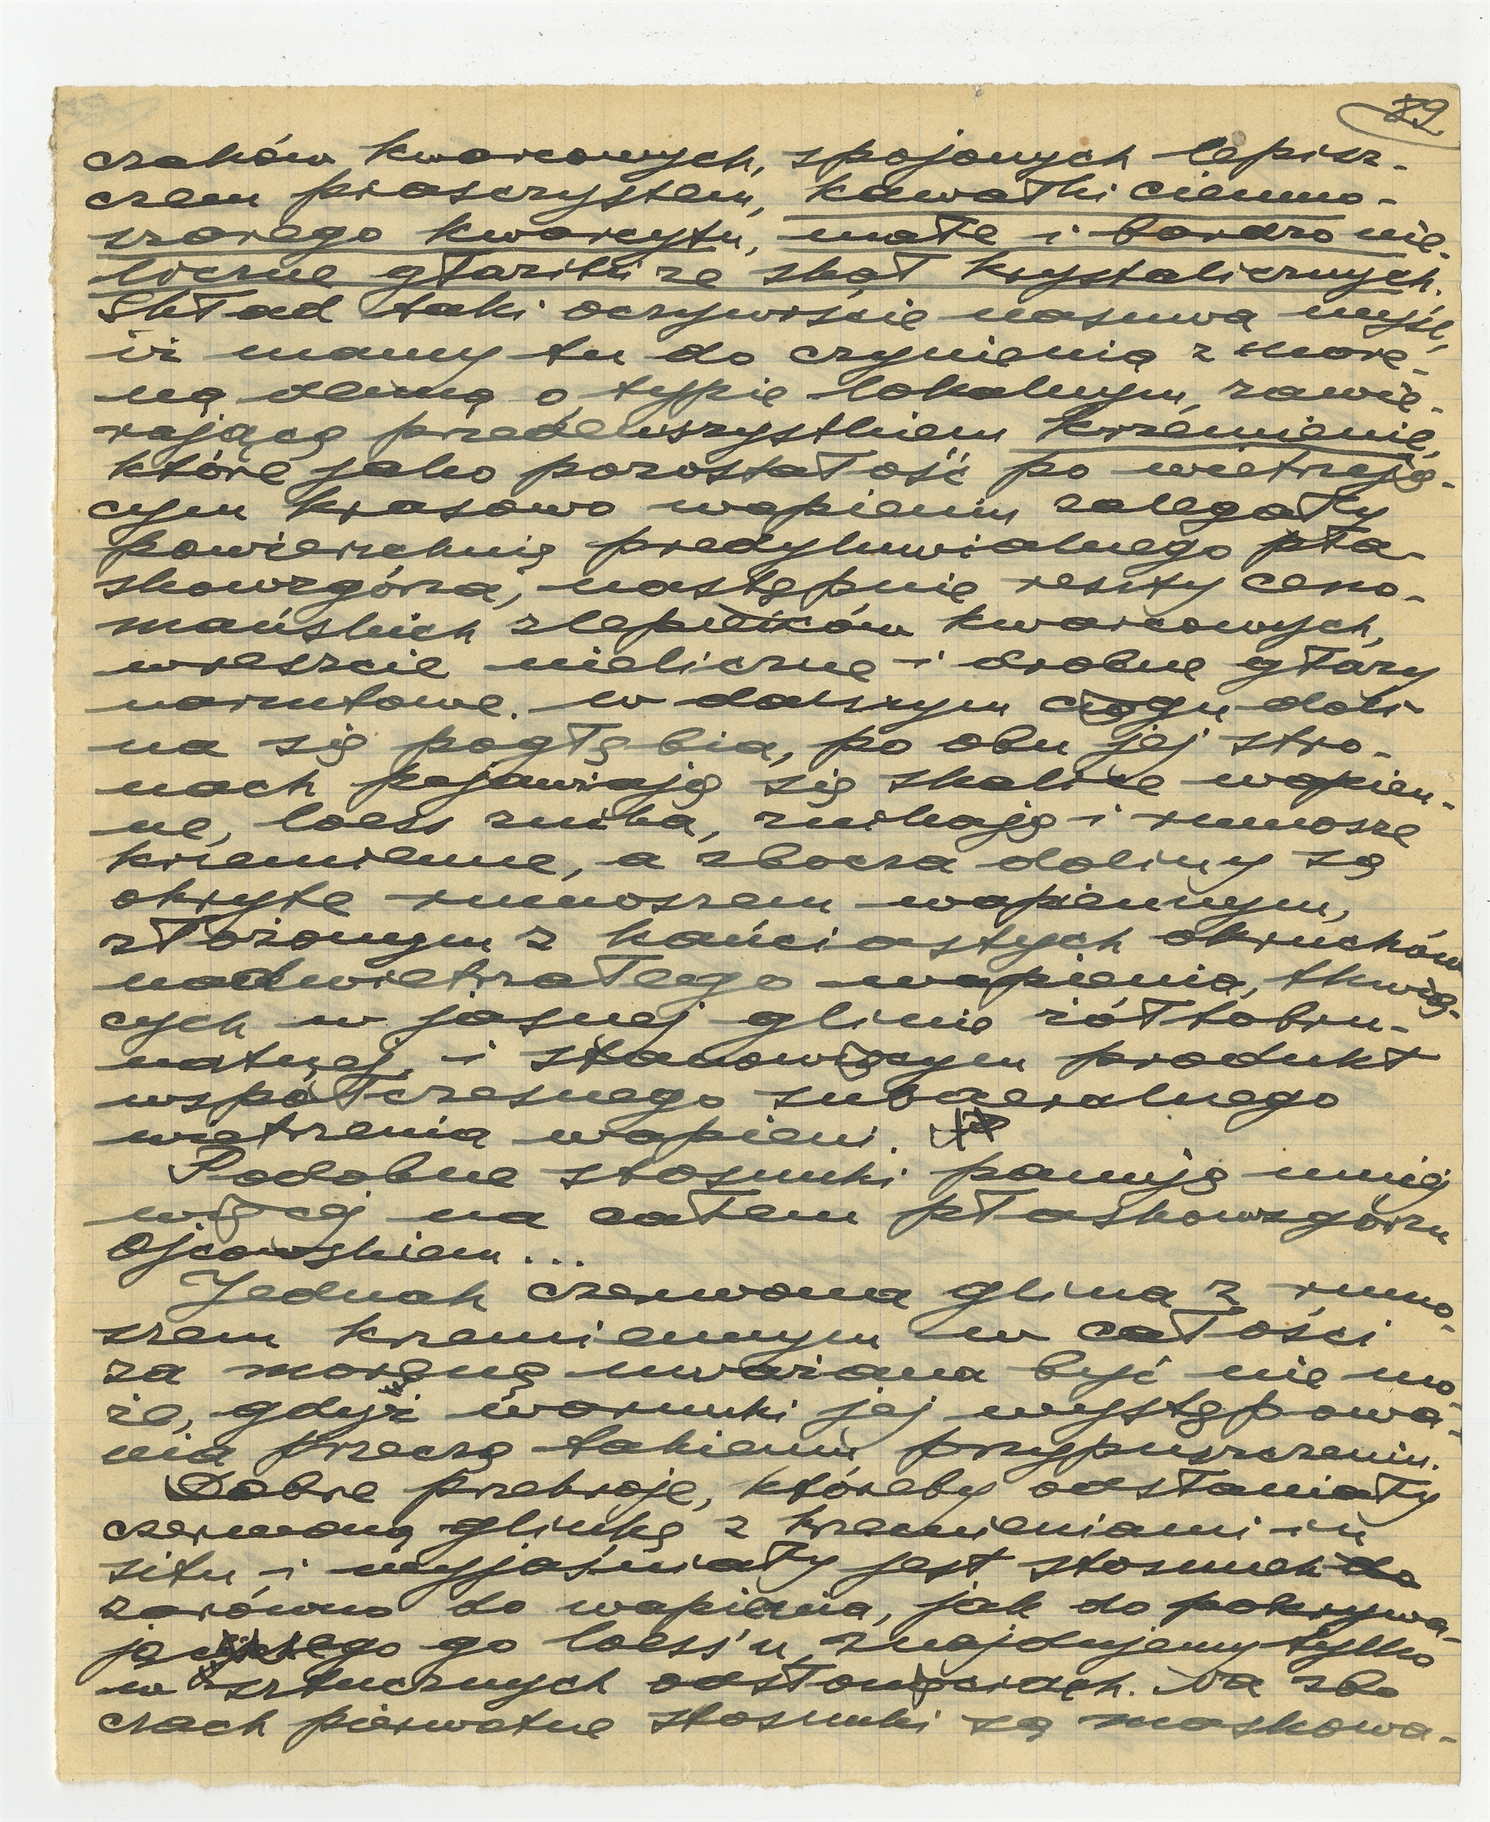 89
czaków kwarcowych, spojonych lepisz-
czem piaszczystem, kawałki ciemno-
szarego kwarcytu, małe i bardzo nie-
liczne głaziki ze skał krystalicznych.
Skład taki oczywiście nasuwa myśl,
iż mamy tu do czynienia z more-
ną denną o typie lokalnym, zawie-
rającą przedewszystkiem krzemienie,
które jako pozostałość po wietrzeją-
cym krasowo wapieniu zalegały
powierzchnię predyluwialnego pła-
skowzgórza, następnie reszty ceno-
mańskich zlepieńców kwarcowych,
wreszcie nieliczne i drobne głazy
narzutowe. W dalszym ciągu doli-
na się pogłębia, po obu jej stro-
nach pojawiają się skałki wapien-
ne, loess znika, znikają i rumosze
krzemienne, a zbocza doliny są
okryte rumoszem wapiennym,
złożonym z kańciastych okruchów
nadwietrzałego wapienia, tkwią-
cych w jasnej glinie żółtobru-
natnej, i stanowiącym produkt
współczesnego subaeralnego
wietrzenia wapieni.
Podobne stosunki panują mniej
więcej na całem płaskowzgórzu
Ojcowskiem...
Jednak czerwona glina z rumo-
szem krzemiennym w całości
za morenę uważana być nie mo-
że, gdyż warunki jej występowa-
nia przeczą takiemu przypuszczeniu.
Dobre przekroje, któreby odsłaniały
czerwoną glinkę z krzemieniami in
situ i wyjaśniały jest stosunek
zarówno do wapienia, jak do pokrywa-
jącego go loess'u, znajdujemy tylko
w sztucznych odsłonięciach. Na zbo
czach pierwotne stosunki są maskowa-